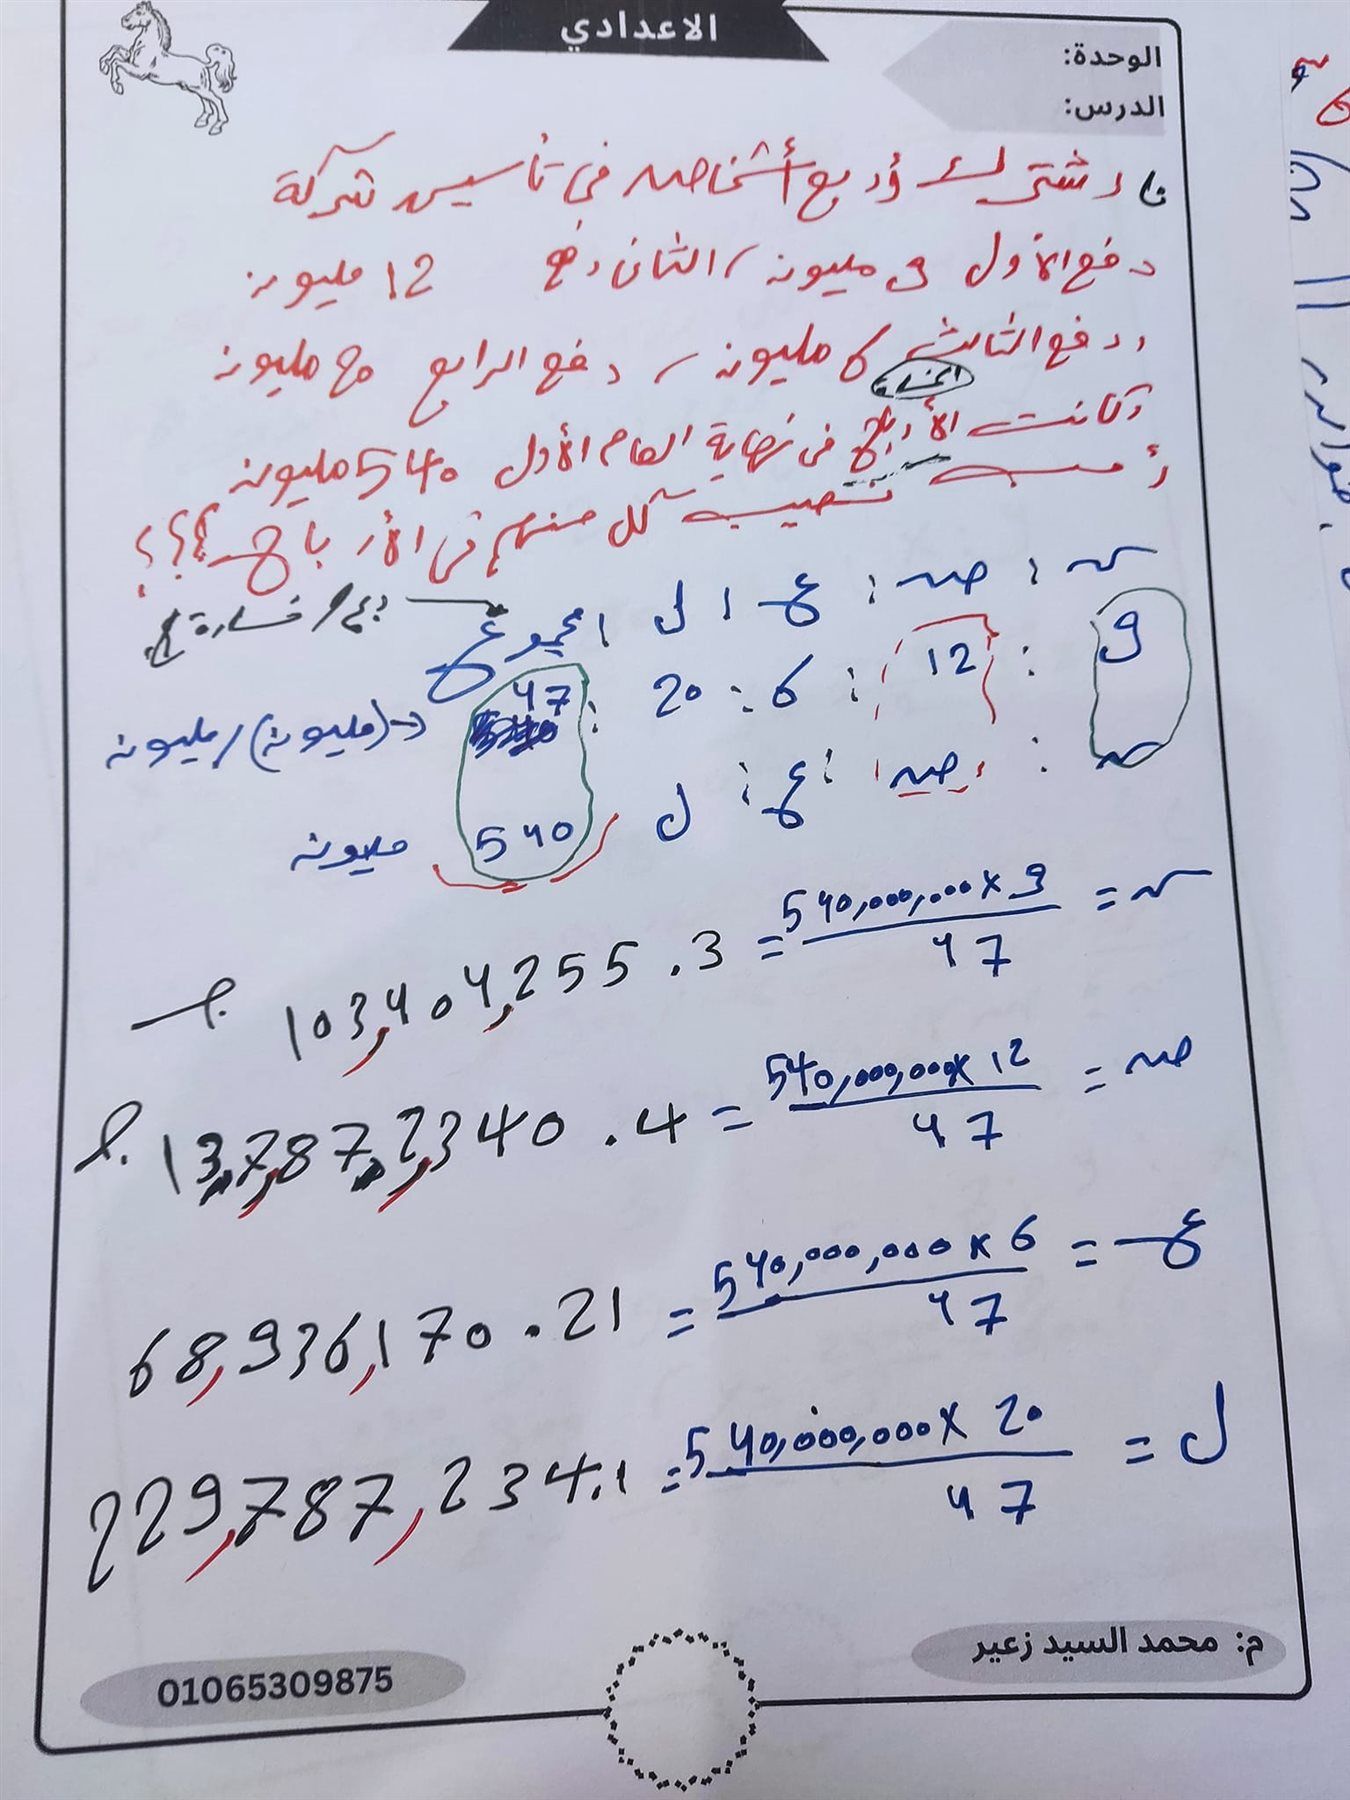 الاعدادي
الوحدة:
الدرس:
اشترك أربع أشخاص في تأسيس شركة
دفع الأول 9 مليون / الثاني دفع 12 مليون
ودفع الثالث 6 مليون / دفع الرابع 20 مليون
وكانت الأرباح في نهاية العام الأول 540 مليون
أحسب نصيب كل منهم في الأرباح ؟؟؟
س : ص : ع : ل : مجموع
9 : 12 : 6 : 20 : 47 (مليون) / مليون
س : ص : ع : ل 540 مليون
س = 540,000,000 x 9 / 47 = 103,404,255.3
ص = 540,000,000 x 12 / 47 = 13,7,87,2,340.4
ع = 540,000,000 x 6 / 47 = 68,936,170.21
ل = 540,000,000 x 20 / 47 = 229,787,234.1
م: محمد السيد زعير
01065309875